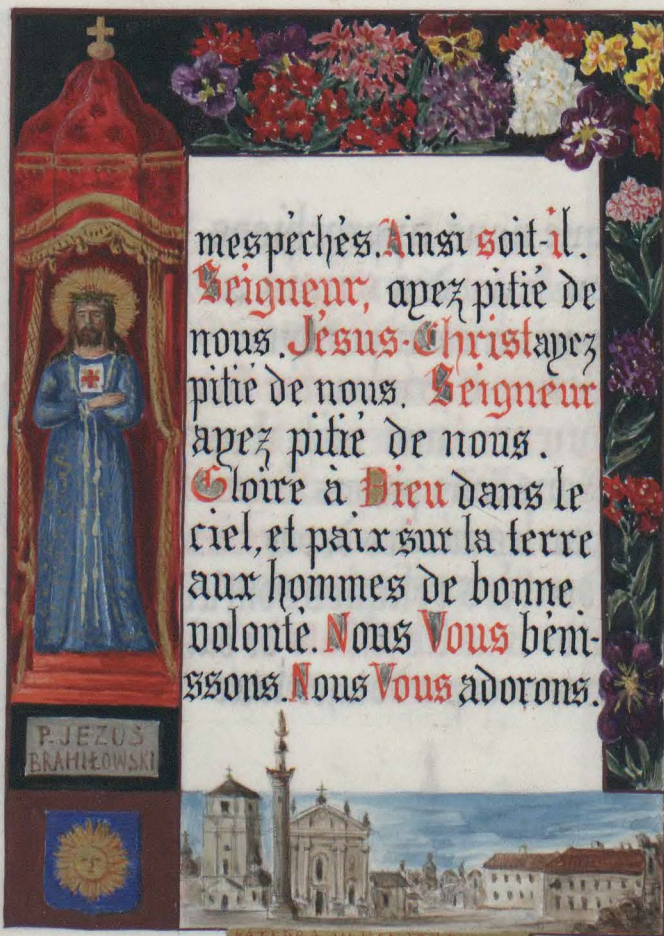 mes péchés. Ainsi soit-il.
Seigneur, ayez pitié de
nous. Jésus-Christ ayez
pitié de nous. Seigneur
ayez pitié de nous.
Gloire à Dieu dans le
ciel, et paix sur la terre
aux hommes de bonne
volonté. Nous Vous béni-
ssons. Nous Vous adorons.
P. JEZUS
BRAHIŁOWSKI